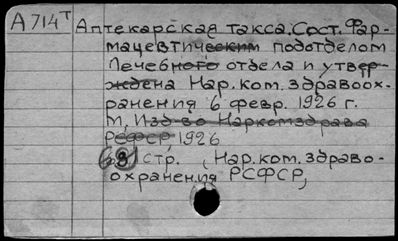 А714т
Аптекарская такса. Сост. Фар-
мацевтическим подотделом
Лечебного отдела и утвер-
ждена Нар. ком. здравоох-
ранения 6 февр. 1926 г.
М, Изд-во Наркомздрава
РСФСР, 1926
68 стр. , Нар. ком. здраво-
охранения РСФСР,